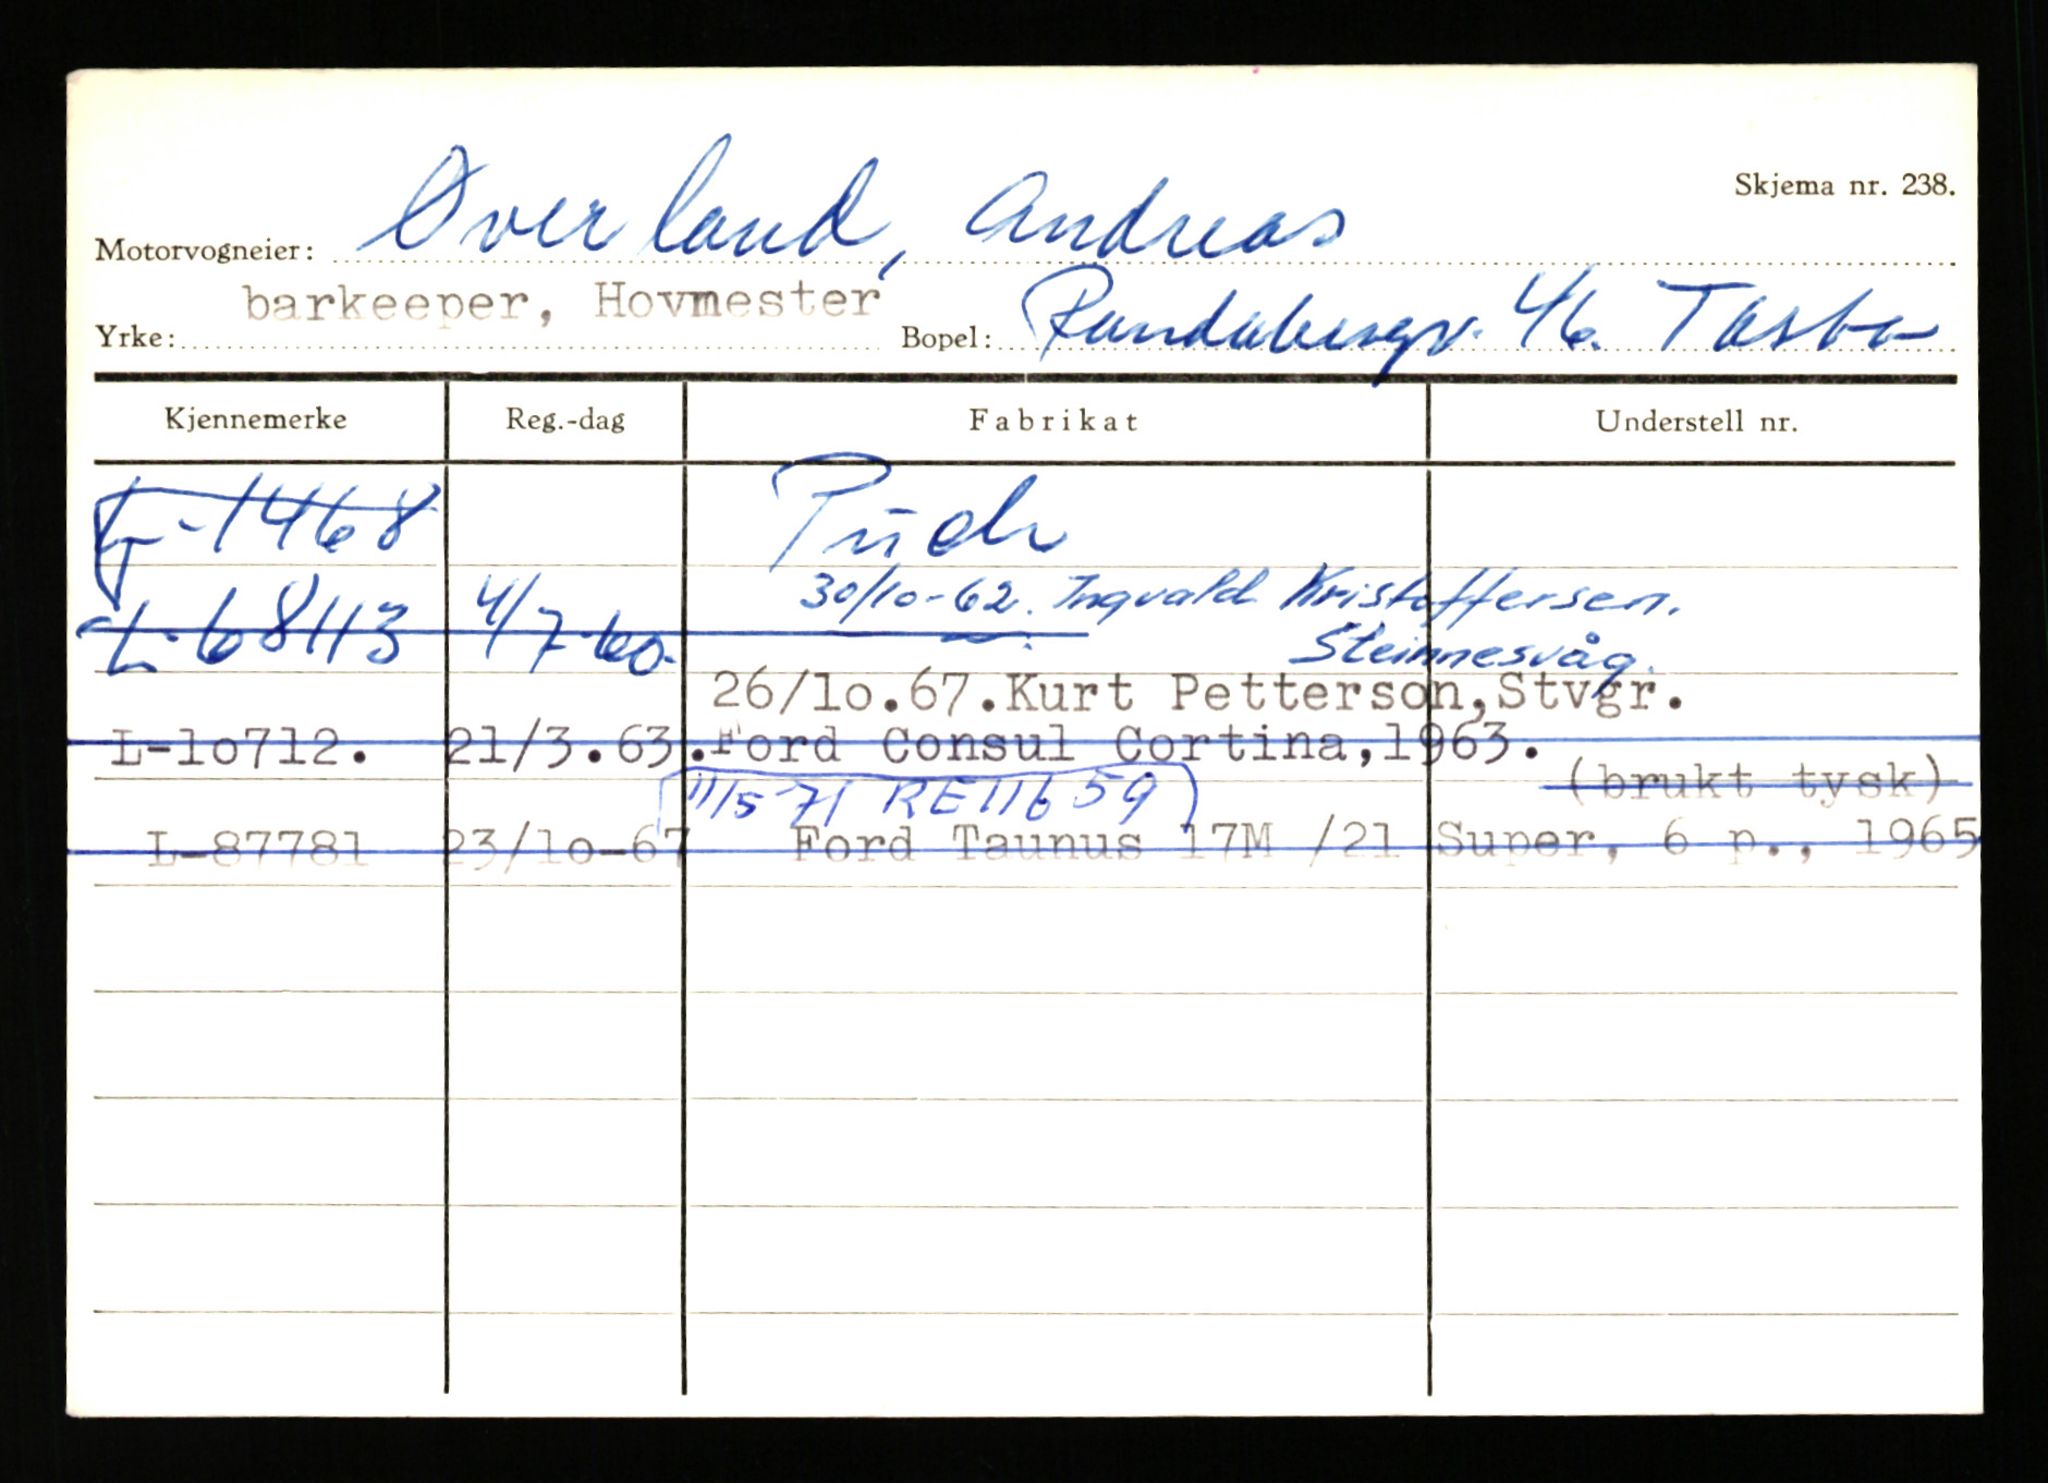 Skjema nr. 238.
Motorvogneier: Øverland, Andreas
barkeeper, Hovmester
Yrke: Bopel: Randabergv. 46. Tasta
Kjennemerke Reg.-dag Fabrikat Understell nr.
L-1468 Puch
30/10-62. Ingvald Kristoffersen.
L-68113 4/7-60. Steinnesvåg.
26/1o.67.Kurt Petterson,Stvgr.
L-1o712. 21/3.63. Ford Consul Cortina,1963.
(brukt tysk)
11/5 71 RE11659
L-87781 23/1o-67 Ford Taunus 17M /21 Super, 6 p., 1965